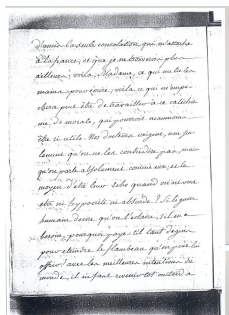 d'amis la seule consolation qui m'attache
à la france, et que je ne trouverai plus
ailleurs; voila, Madame, ce qui me lie les
mains pour écrire, voila ce qui m'empe-
chera peut être de travailler à ce catéchis
me de morale, qui pourroit neanmoins
être si utile. Nos docteurs exigent, non seu
lement qu'on ne les contredise pas, mais
qu'on parle absolument comme eux, et le
moyen d'être leur echo quand on ne veut
être ni hypocrite ni absurde? Si le genre
humain desire qu'on l'eclaire, s'il en a
besoin, pourquoi paye t'il tant de gens
pour eteindre le flambeau qu'on peut lui
offrir? avec les meilleures intentions du
monde, il faut revenir tot ou tard à